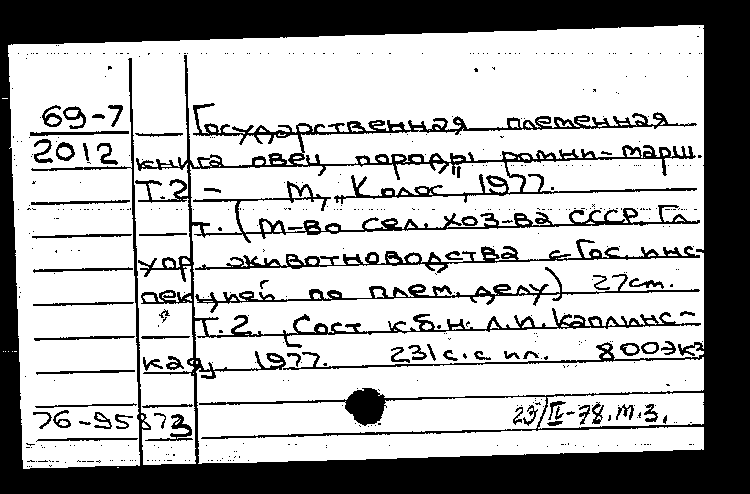 69-7 Государственная племенная
2012 книга овец породы ромни-марш.
Т.2 - М., „Колос", 1977.
т. (М-во сел. хоз-ва СССР. Гл.
упр. животноводства с Гос. инс-
пекцией по плем. делу) 27 cm.
Т.2. Сост. к.б.н. Л.И. Каплинс-
кая, 1977. 231 с. с ил. 800 экз
76-95873 23/II-78. т.з.